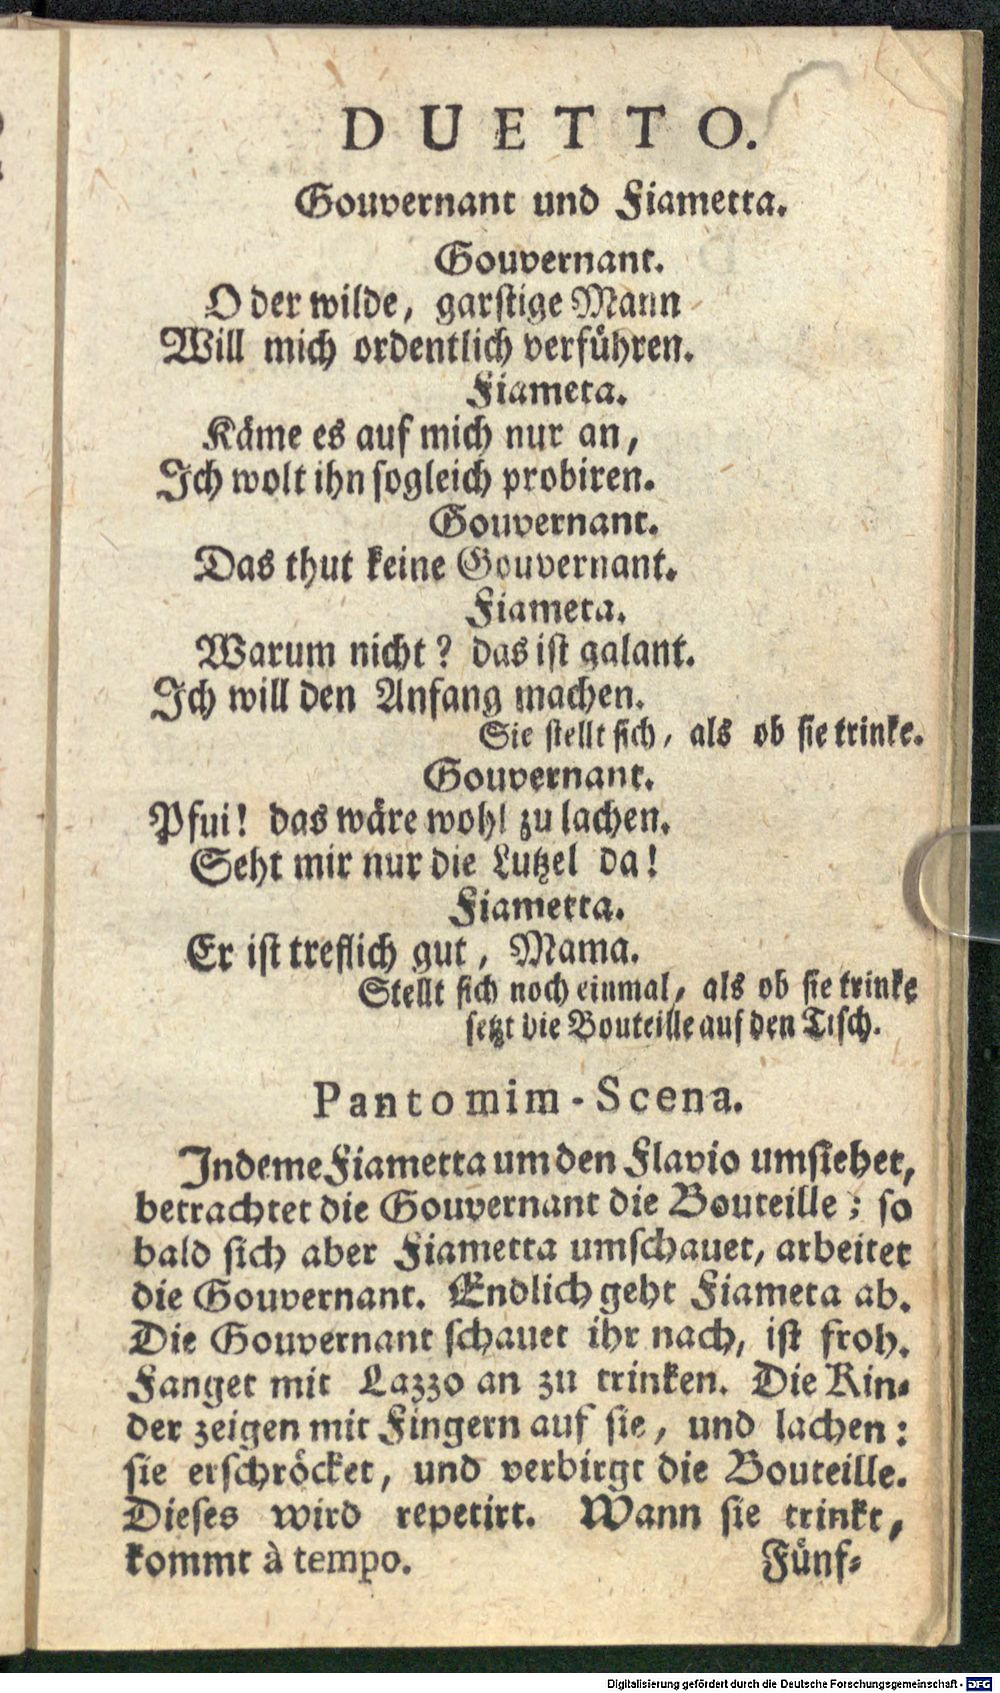 DUETTO.
Gouvernant und Fiametta.
Gouvernant.
O der wilde, garstige Mann
Will mich ordentlich verführen.
Fiameta.
Käme es auf mich nur an,
Ich wolt ihn sogleich probiren.
Gouvernant.
Das thut keine Gouvernant.
Fiameta.
Warum nicht? das ist galant.
Ich will den Anfang machen.
Sie stellt sich, als ob sie trinke.
Gouvernant.
Pfui! das wäre wohl zu lachen.
Seht mir nur die Lutzel da!
Fiametta.
Er ist treflich gut, Mama.
Stellt sich noch einmal, als ob sie trinke
setzt die Bouteille auf den Tisch.
Pantomim-Scena.
Indeme Fiametta um den Flavio umsiehet,
betrachtet die Gouvernant die Bouteille; so
bald sich aber Fiametta umschauet, arbeitet
die Gouvernant. Endlich geht Fiameta ab.
Die Gouvernant schauet ihr nach, ist froh.
Fanget mit Lazzo an zu trinken. Die Kin-
der zeigen mit Fingern auf sie, und lachen:
sie erschröcket, und verbirgt die Bouteille.
Dieses wird repetirt. Wann sie trinkt,
kommt à tempo.
Fünf-
Digitalisierung gefördert durch die Deutsche Forschungsgemeinschaft - DFG